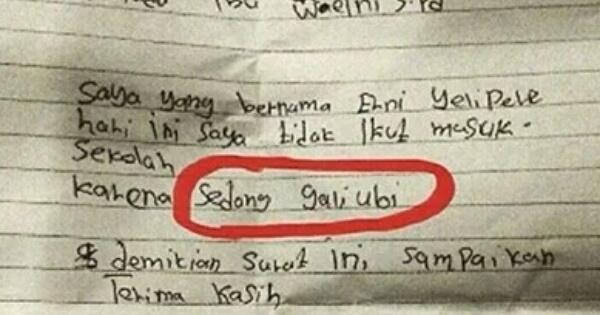 Ibu Waelni S.Pd
Saya yang bernama Erni Yelipele
hari ini saya tidak Ikut masuk.
Sekolah
karena sedang gali ubi
demikian surat ini, sampaikan
Terima Kasih